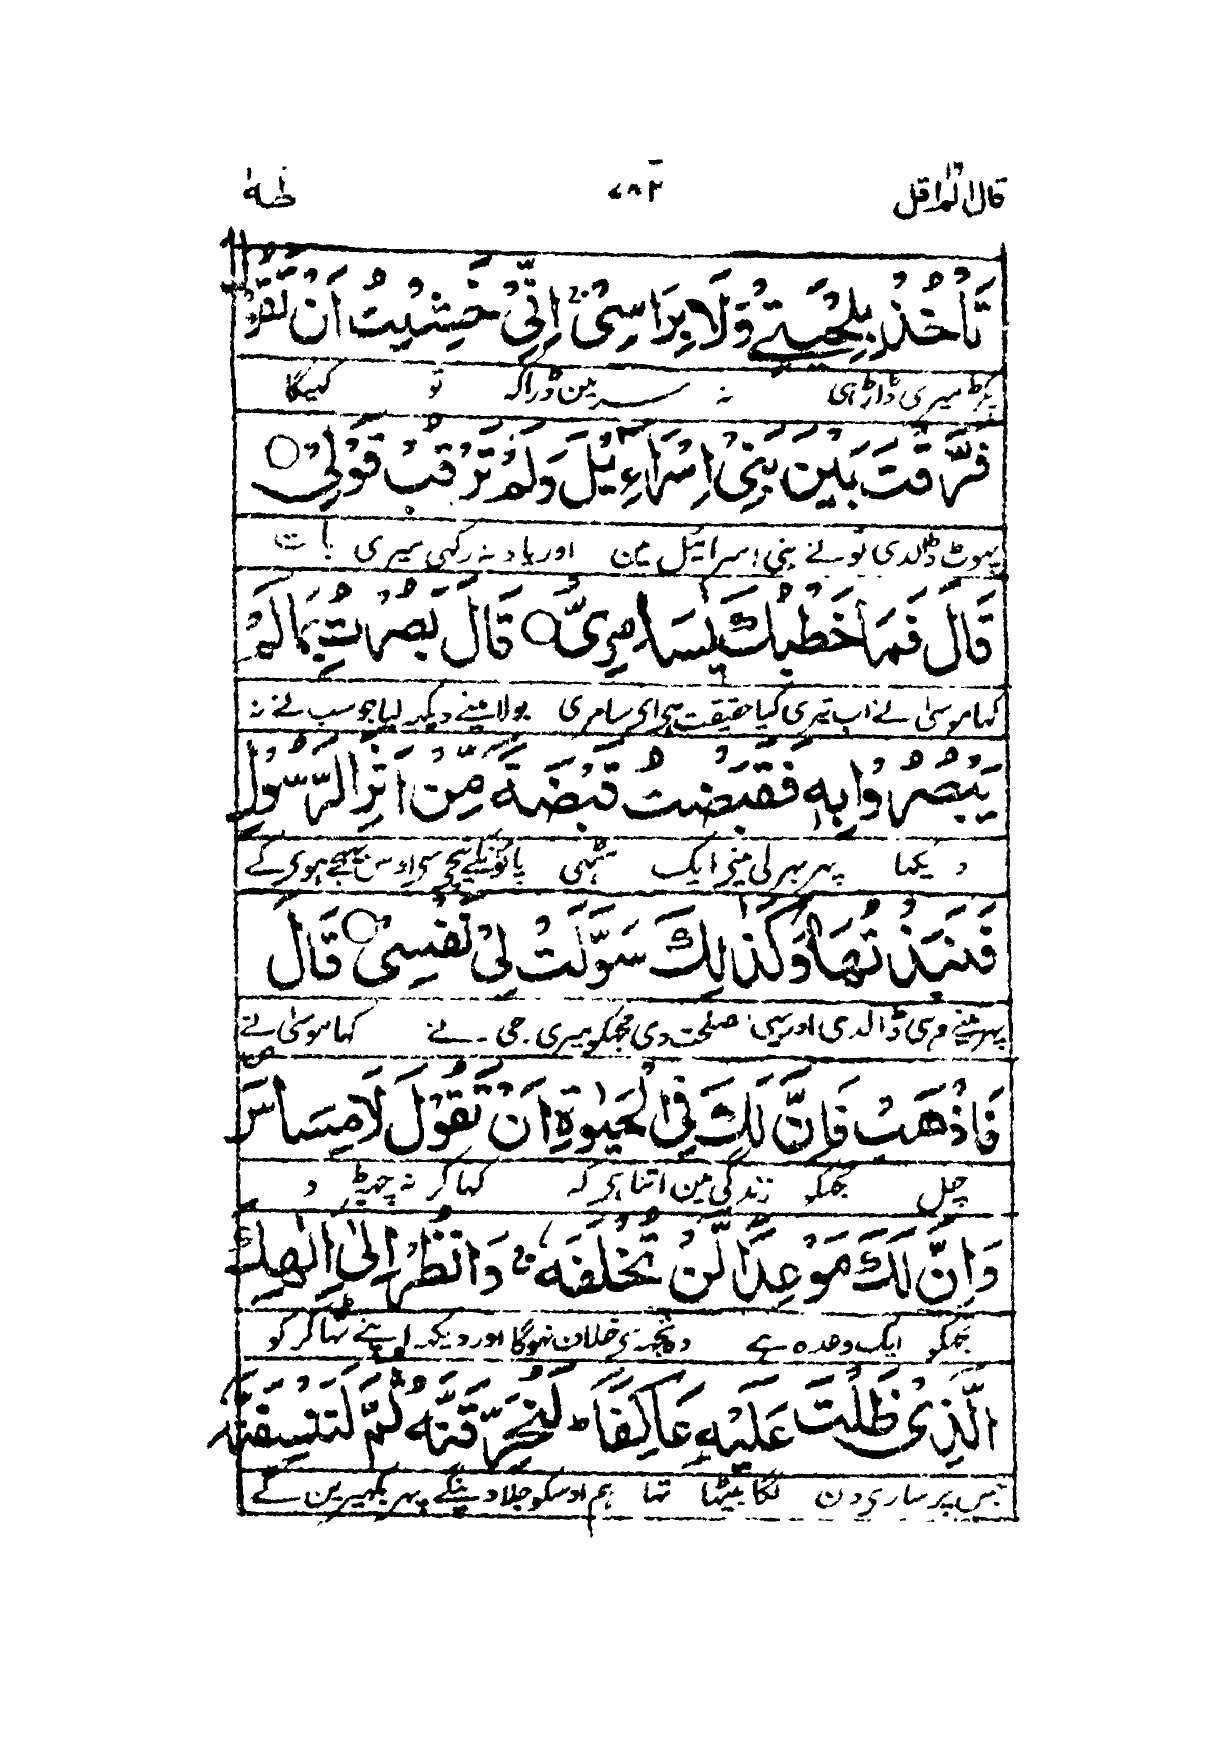 قال الم اقل ٤٨٢ طٰهٰ
تَاْخُذْ بِلِحْيَتِيْ وَلَا بِرَاْسِيْ ۚ اِنِّيْ خَشِيْتُ اَنْ تَقُوْلَ
پکڑ میری ڈاڑہی نہ سر مین ڈرا کہ تو کہیگا
فَرَّقْتَ بَيْنَ بَنِيْ اِسْرَآءِيْلَ وَلَمْ تَرْقُبْ قَوْلِيْ ○
پہوٹ ڈالدی تو نے بنی اسرائیل مین اور یاد نہ رکہی میری بات
قَالَ فَمَا خَطْبُكَ يٰسَامِرِيُّ ○ قَالَ بَصُرْتُ بِمَا لَمْ
کہا موسیٰ نے اب تیری کیا حقیقت ہی ای سامری بولا مینے دیکہہ لیا جو سب نے نہ
يَبْصُرُوْا بِهٖ فَقَبَضْتُ قَبْضَةً مِّنْ اَثَرِ الرَّسُوْلِ
دیکہا پہر بہر لی مینے ایک مٹہی پانؤنکے نیچی سی اوس بہیجے ہوی کے
فَنَبَذْتُهَا وَكَذٰلِكَ سَوَّلَتْ لِيْ نَفْسِيْ ○ قَالَ
پہر مینے وہی ڈالدی اور یہی صلحت دی مجہکو میری جی نے کہا موسیٰ نے
فَاذْهَبْ فَاِنَّ لَكَ فِي الْحَيٰوةِ اَنْ تَقُوْلَ لَا مِسَاسَ ص
چل تجہکو زندگی مین اتنا ہی کہ کہا کر نہ چہیڑو
وَاِنَّ لَكَ مَوْعِدًا لَّنْ تُخْلَفَهٗ ۚ وَانْظُرْ اِلٰٓى اِلٰهِكَ
تجہکو ایک وعدہ ہے وہ تجہسی خلاف نہوگا اور دیکہہ اپنے ٹہاکر کو
الَّذِيْ ظَلْتَ عَلَيْهِ عَاكِفًا ط لَنُحَرِّقَنَّهٗ ثُمَّ لَنَنْسِفَنَّهٗ
جس پر ساری دن لگا بیٹہا تہا ہم اوسکو جلا دینگے پہر بکہیرین گے